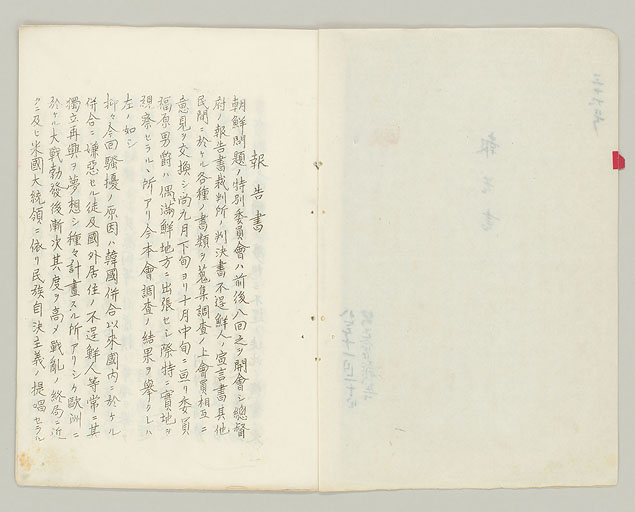 報告書
朝鮮問題ノ特別委員會ハ前後八回之ヲ開會シ總督
府ノ報告書裁判所ノ判決書不逞鮮人ノ宣言書其他
民間ニ於ケル各種ノ書類ヲ蒐集調査ノ上會員相互ニ
意見ヲ交換シ尚九月下旬ヨリ十月中旬ニ亘リ委員
福原男爵ハ偶滿鮮地方ニ出張セシ際特ニ實地ヲ
視察セラルヽ所アリ今本會調査ノ結果ヲ擧クレハ
左ノ如シ
抑々今回騷擾ノ原因ハ韓國併合以來國内ニ於ケル
併合ニ嫌惡セル徒及國外居住ノ不逞鮮人等常ニ其
獨立再興ヲ夢想シ種々計畫スル所アリシカ歐洲ニ
於ケル大戰勃發後漸次其度ヲ高メ戰亂ノ終局ニ近
クニ及ヒ米國大統領ニ依リ民族自決主義ノ提唱セラル